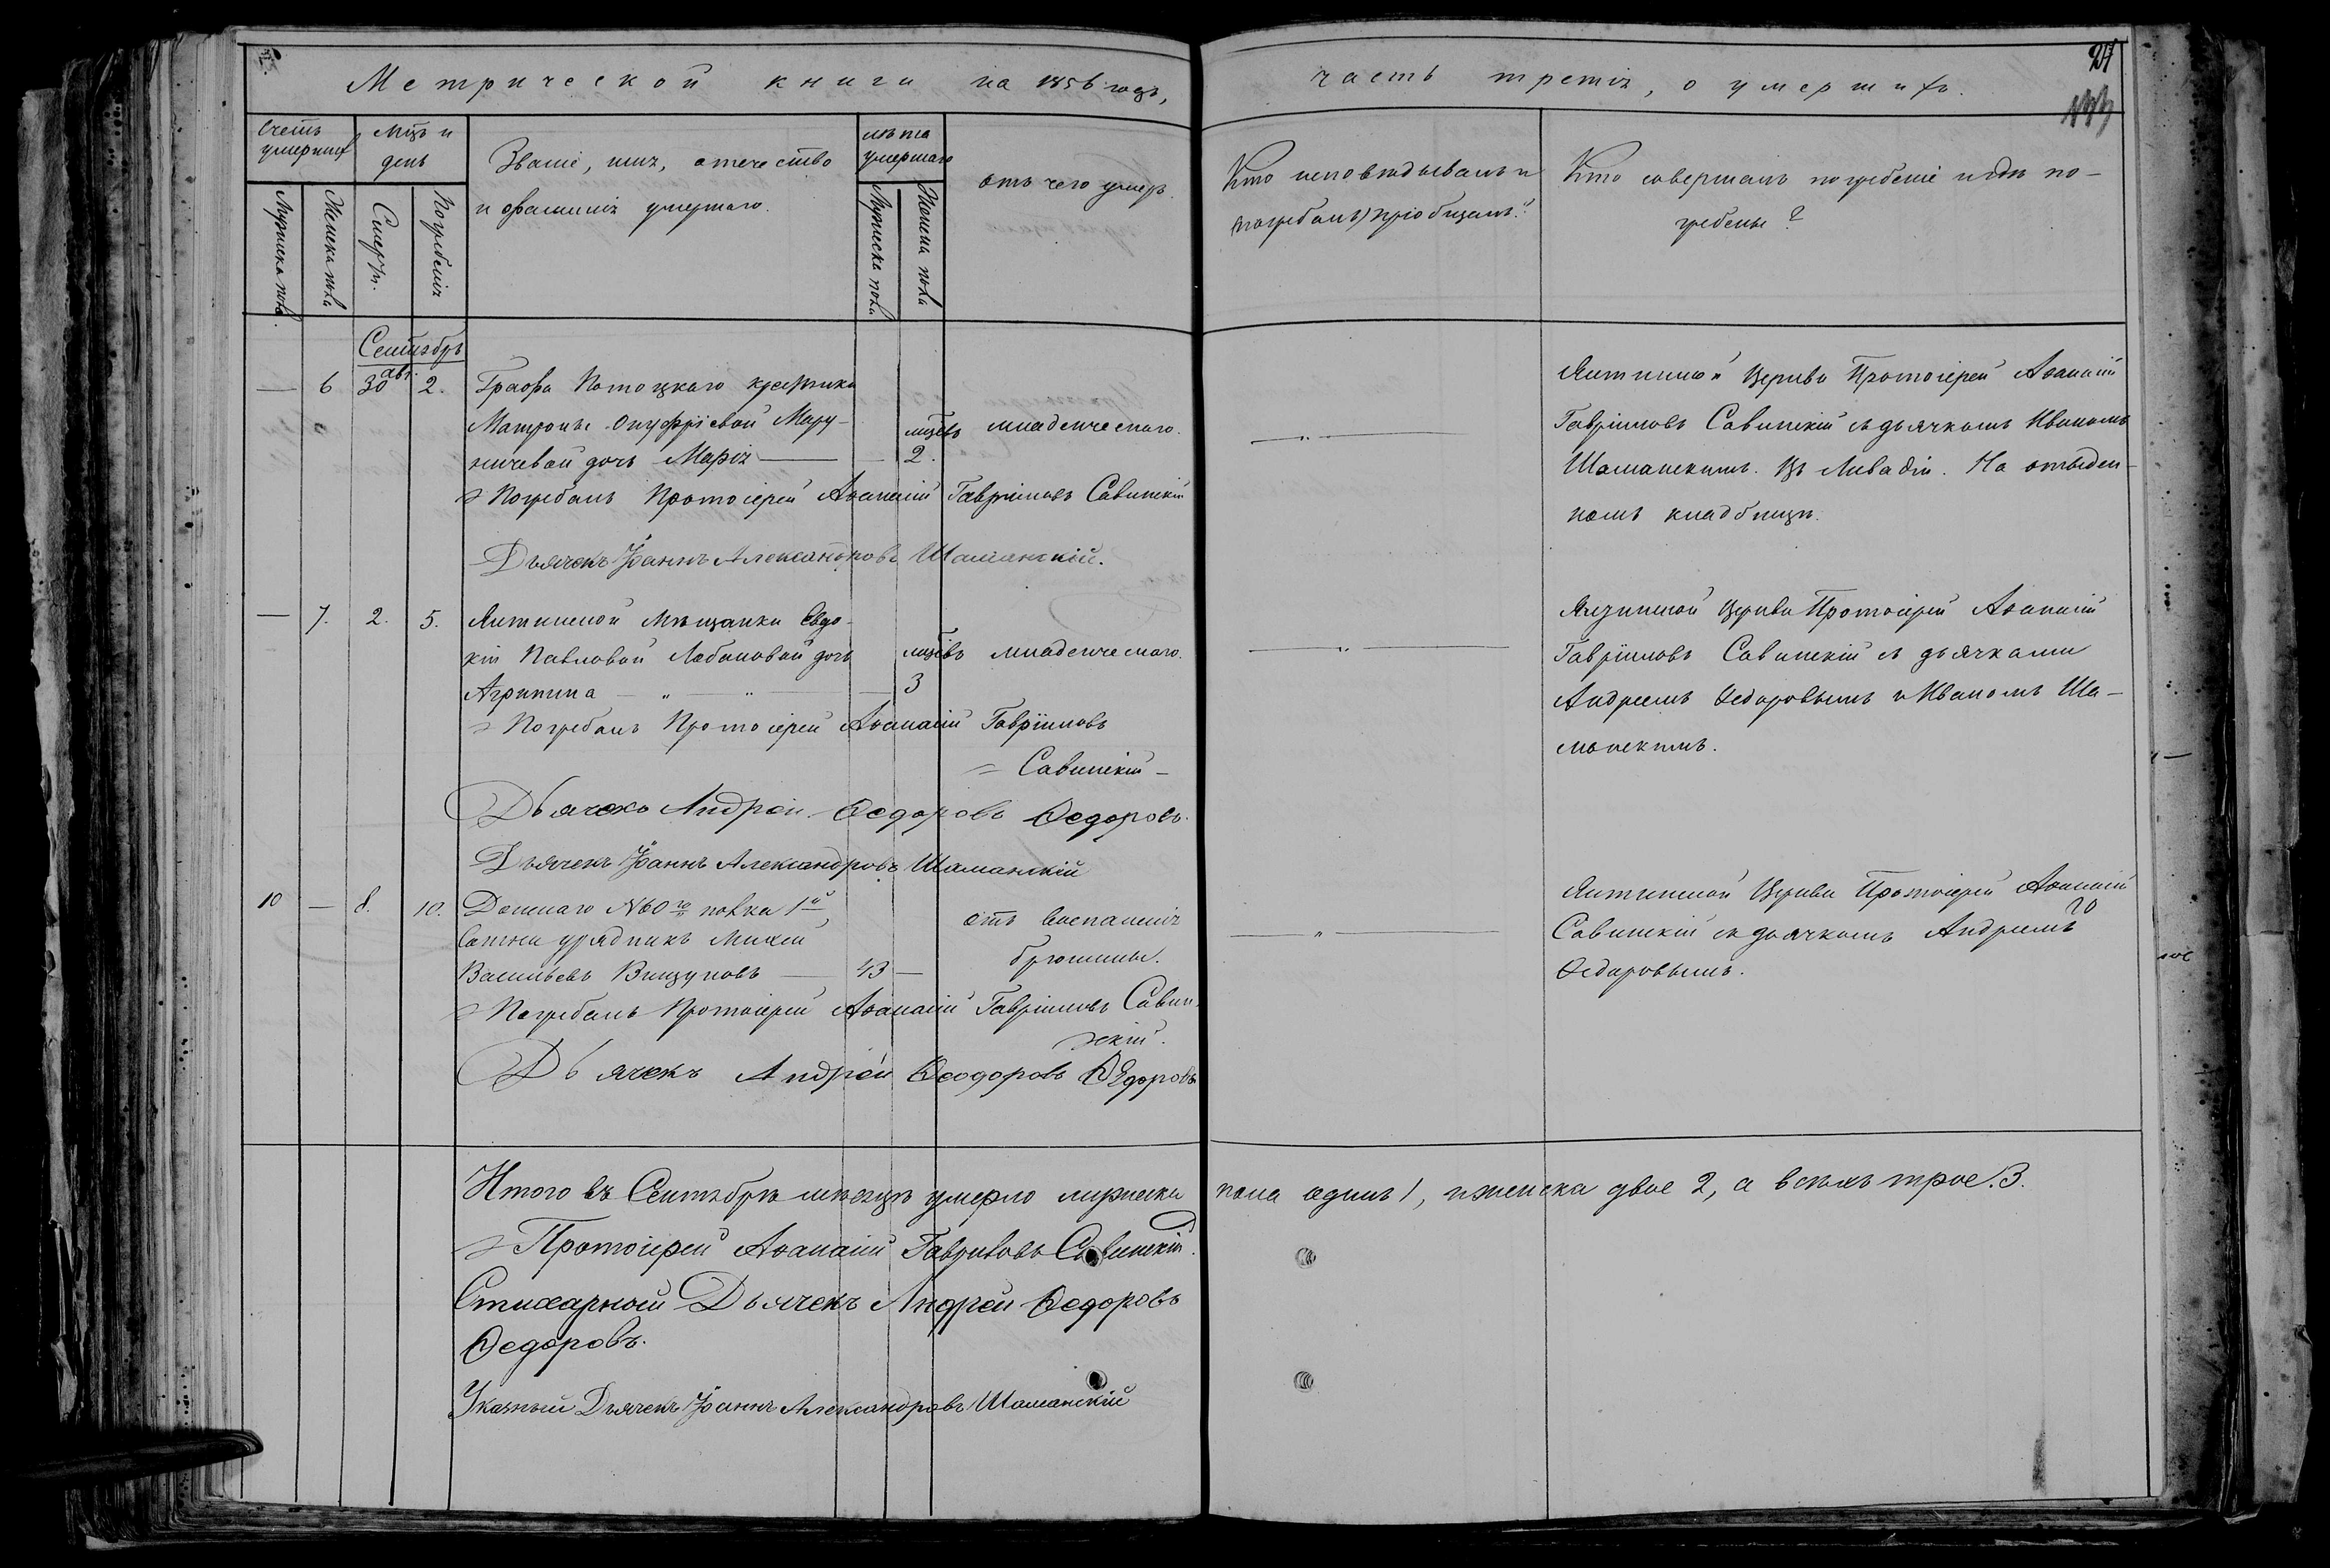 Метрической книги на 1856 годъ,
часть третія, о умершихъ.
Счетъ умершихъ
Мцъ и день
Званіе, имя, отечество
и фамилія умершаго.
лѣта умершаго
отъ чего умеръ.
Кто исповѣдывалъ и
(погребалъ) пріобщалъ?
Кто совершалъ погребеніе и гдѣ по-
гребены?
Мужеска пола
Женска пола
Смерти.
Погребенія
Мужеска пола
Женска пола
Сентябрь
— 6 30 авг. 2. Графа Потоцкаго крестьянки
Матроны Онуфріевой Мару-
ничевой дочь Марія — 2. младенческаго.
Погребалъ Протоіерей Аѳанасій Гавріиловъ Савинскій
Дьячекъ Іоаннъ Александровъ Шаманскій.
Ялтинской Церкви Протоіерей Аѳанасій
Гавріиловъ Савинскій съ дьячкомъ Иваномъ
Шаманскимъ. Въ Ливадіи. На отведен-
номъ кладбищѣ.
— 7. 2. 5. Ялтинской Мѣщанки Евдо-
кіи Павловой Лобановой дочь младенческаго.
Агрипина — „ — „ — 3
Погребалъ Протоіерей Аѳанасій Гавріиловъ
Савинскій —
Дьячекъ Андрей Ѳедоровъ Ѳедоровъ.
Дьячекъ Іоаннъ Александровъ Шаманскій
Ялтинской Церкви Протоіерей Аѳанасій
Гавріиловъ Савинскій съ дьячками
Андреемъ Ѳедоровымъ и Иваномъ Ша-
манскимъ.
10 — 8. 10. Донскаго №60го полка 1й
Сотни урядникъ
Васильевъ — 43 —
отъ воспаленія
брюшины.
Погребалъ Протоіерей Аѳанасій Гавріиловъ Савин-
скій.
Дьячекъ Андрей Ѳеодоровъ Ѳедоровъ
Ялтинской Церкви Протоіерей Аѳанасій
Савинскій съ дьячкомъ Андреемъ
Ѳедоровымъ.
Итого въ Сентябрѣ мѣсяцѣ умерло мужеска пола одинъ 1, и женска двое 2, а всѣхъ трое. 3.
Протоіерей Аѳанасій Гавриловъ Савинскій.
Стихарный Дьячекъ Андрей Ѳедоровъ
Ѳедоровъ.
Указный Дьячекъ Іоаннъ Александровъ Шаманскій